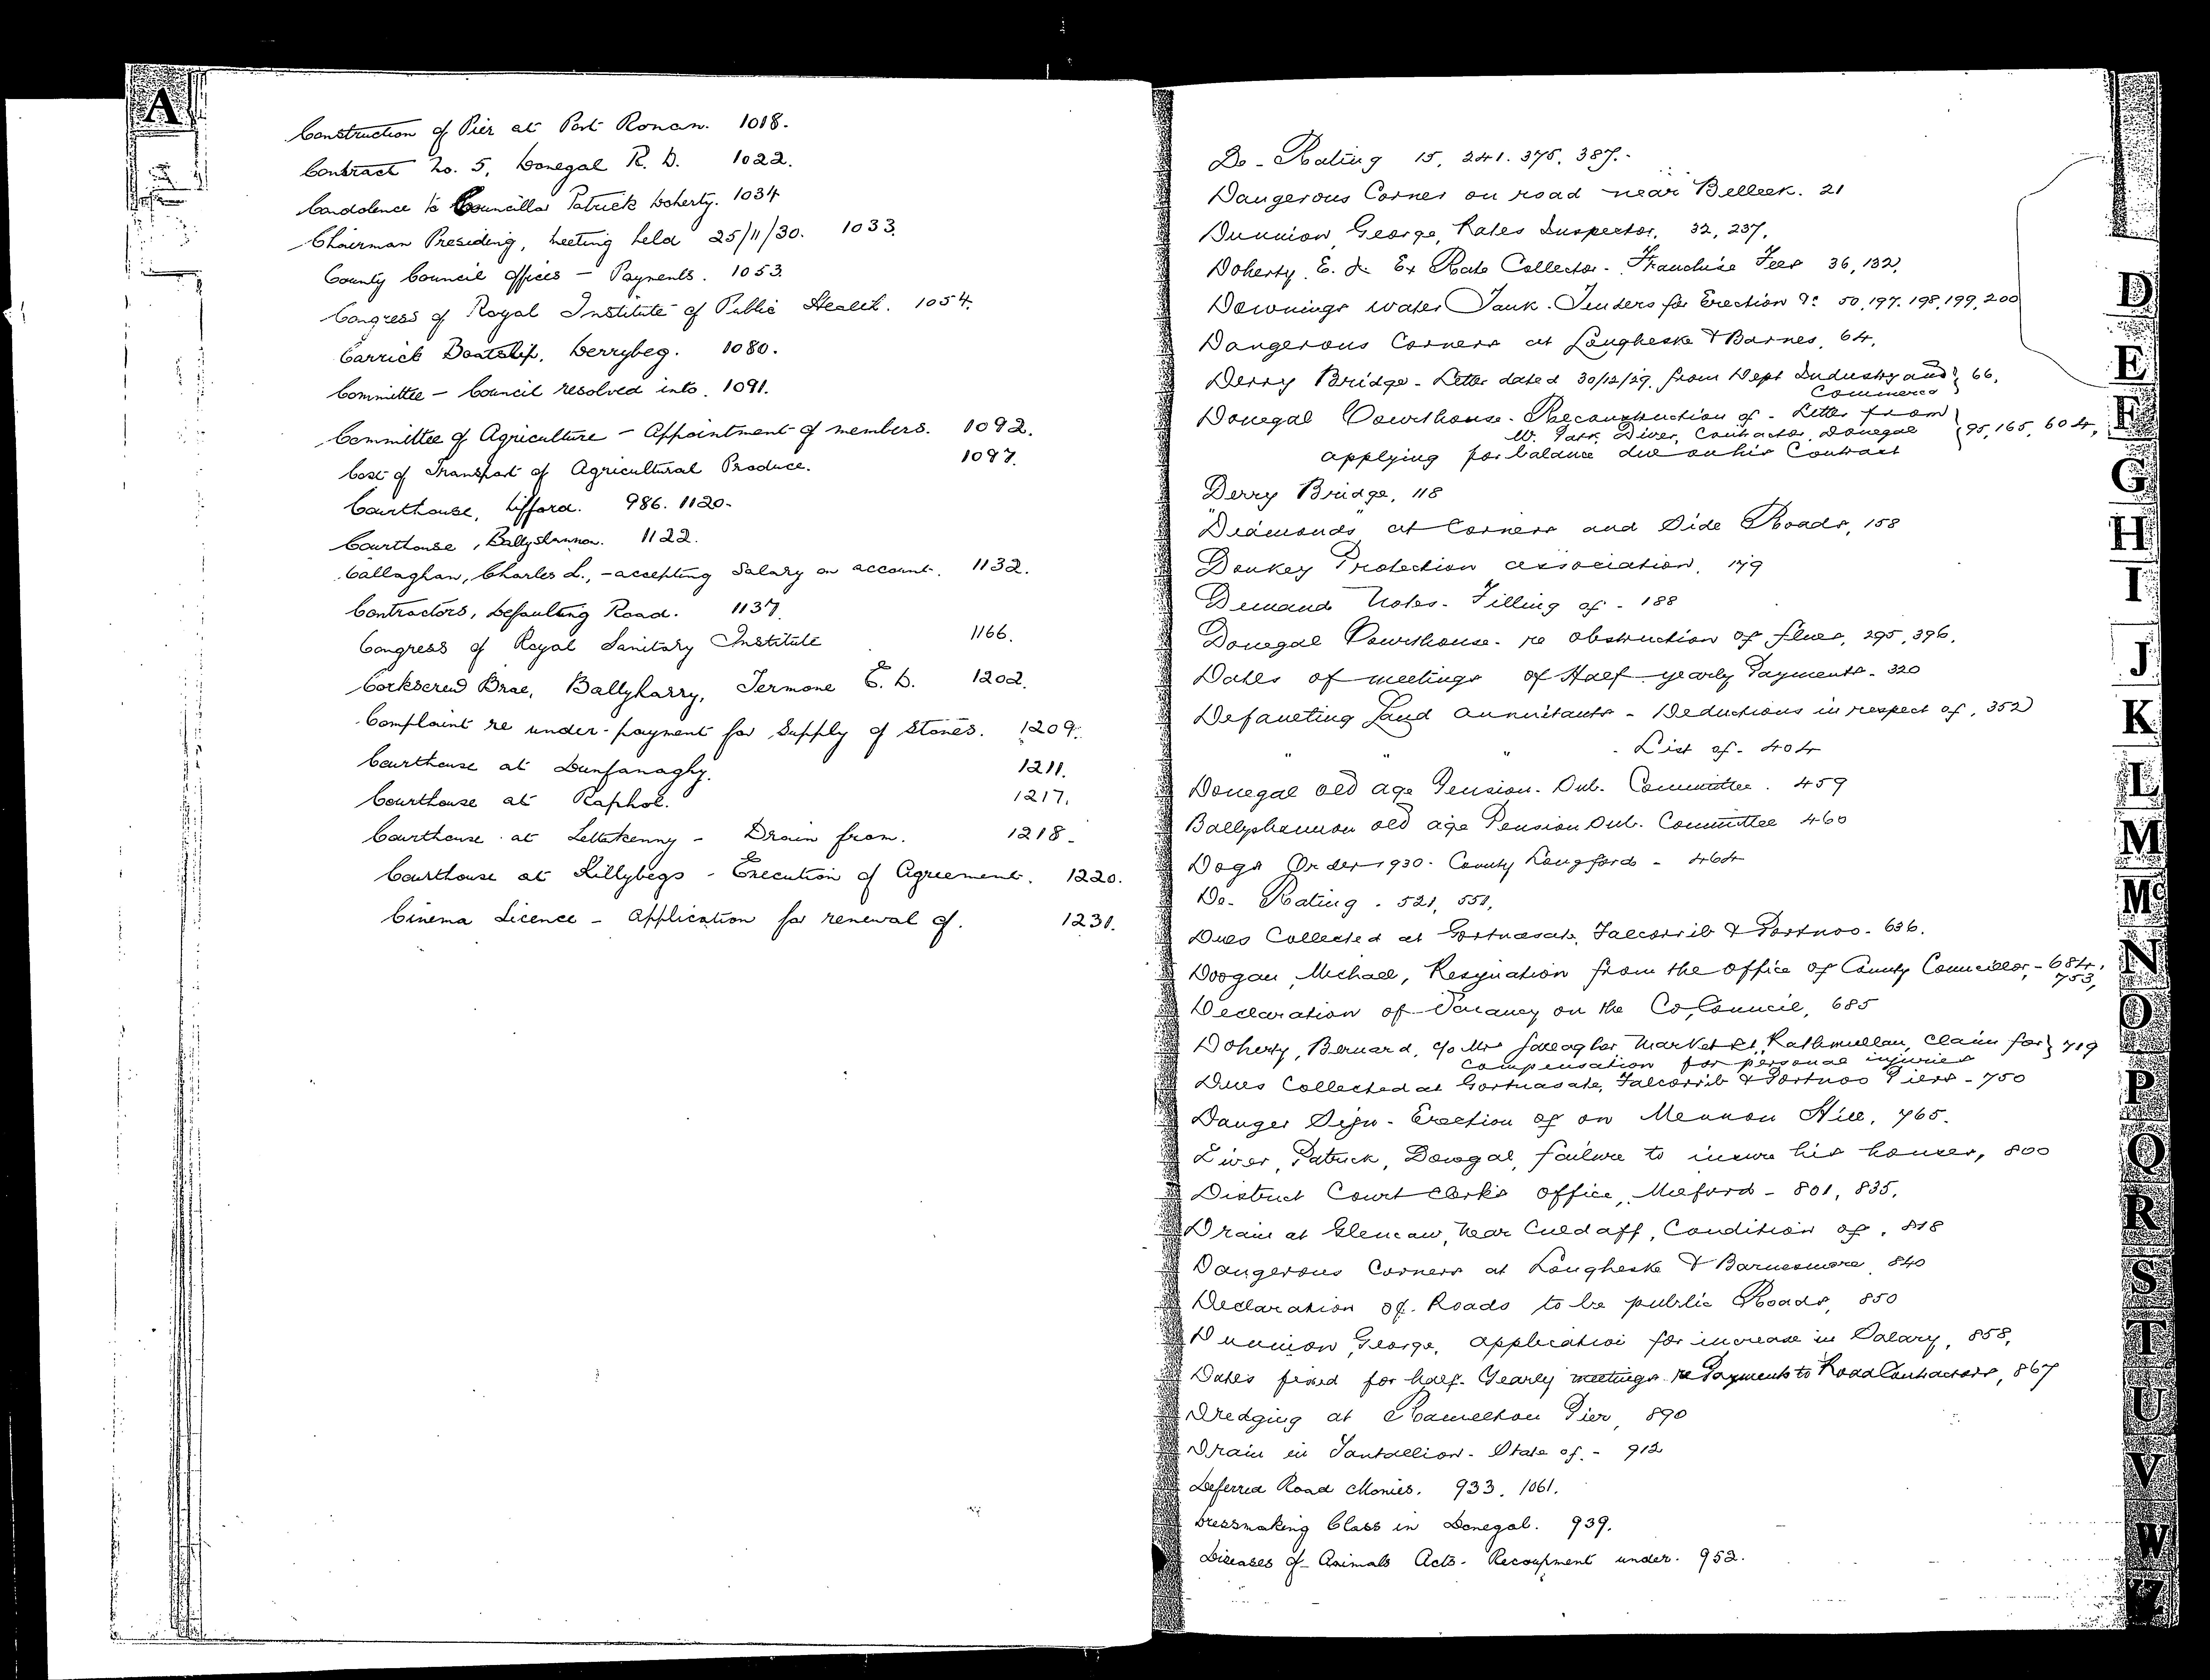 A
Construction of Pier at Port Ronan. 1018.
Contract No. 5, Donegal R. D. 1022.
Condolence to Councillor Patrick Doherty. 1034
Chairman Presiding, Meeting held 25/11/30. 1033.
County Council Offices - Payments. 1053.
Congress of Royal Institute of Public Health. 1054.
Carrick Boatslip, Derrybeg. 1080.
Committee - Council resolved into. 1091.
Committee of Agriculture - Appointment of members. 1092.
Cost of Transport of Agricultural Produce. 1097.
Courthouse, Lifford. 986. 1120.
Courthouse, Ballyshannon. 1122.
Callaghan, Charles L., - accepting Salary on account. 1132.
Contractors, Defaulting Road. 1137.
Congress of Royal Sanitary Institute 1166.
Corkscrew Brae, Ballyharry, Termone E. D. 1202.
Complaint re under-payment for Supply of Stones. 1209.
Courthouse at Dunfanaghy. 1211.
Courthouse at Raphoe. 1217.
Courthouse at Letterkenny - Drain from. 1218.
Courthouse at Killybegs - Execution of Agreement. 1220.
Cinema Licence - Application for renewal of. 1231.
De-Rating 15, 241. 375, 387.
Dangerous Corner on road near Belleek. 21
Dunnion, George, Rates Inspector. 32, 237.
Doherty, E. Ex Rate Collector - Franchise Fees 36, 132,
Downings Water Tank. Tenders for Erection &c 50, 197. 198, 199, 200
Dangerous Corners at Lougheske & Barnes, 64.
Derry Bridge - Letter dated 30/12/29. from Dept Industry and } 66.
Commerce
Donegal Courthouse - Reconstruction of - Letter from
Mr. Patk Diver, Contractor, Donegal } 95, 165, 604,
applying for balance due on his Contract
Derry Bridge, 118
"Diamonds" at Corners and Side Roads, 158
Donkey Protection association, 179
Demand Notes - Filling of - 188
Donegal Courthouse - re obstruction of flues, 295, 396.
Dates of meetings of Half yearly Payments - 320
Defaulting Land Annuitants - Deductions in respect of, 352
" " " - List of - 404
Donegal old age Pension Sub. Committee. 459
Ballyshannon old age Pension Sub. Committee 460
Dogs Order 1930. County Longford - 464
De-Rating. 521, 551,
Dues Collected at Gortnasate, Falcorrib & Portnoo - 636.
Doogan, Michael, Resignation from the office of County Councillor - 684,
753,
Declaration of Vacancy on the Co, Council, 685
Doherty, Bernard, c/o Mrs Gallagher Market St, Rathmullan, Claim for } 719
compensation for personal injuries
Dues Collected at Gortnasate, Falcorrib & Portnoo Piers - 750
Danger Sign - Erection of on Mennon Hill, 765.
Diver, Patrick, Donegal, failure to insure his houses, 800
District Court Clerk's office, Milford - 801, 835,
Drain at Glencaw, near Culdaff, Condition of, 818
Dangerous Corners at Lougheske & Barnesmore, 840
Declaration of Roads to be public Roads, 850
Dunnion, George, application for increase in Salary, 858,
Dates fixed for half-Yearly meetings re Payments to Road Contractors, 867
Dredging at Ramelton Pier, 890
Drain in - State of - 912
Deferred Road Monies. 933. 1061.
Dressmaking Class in Donegal. 939.
Diseases of Animals Acts - Recoupment under. 952.
D
E
F
G
H
I
J
K
L
M
Mc
N
O
P
Q
R
S
T
U
V
W